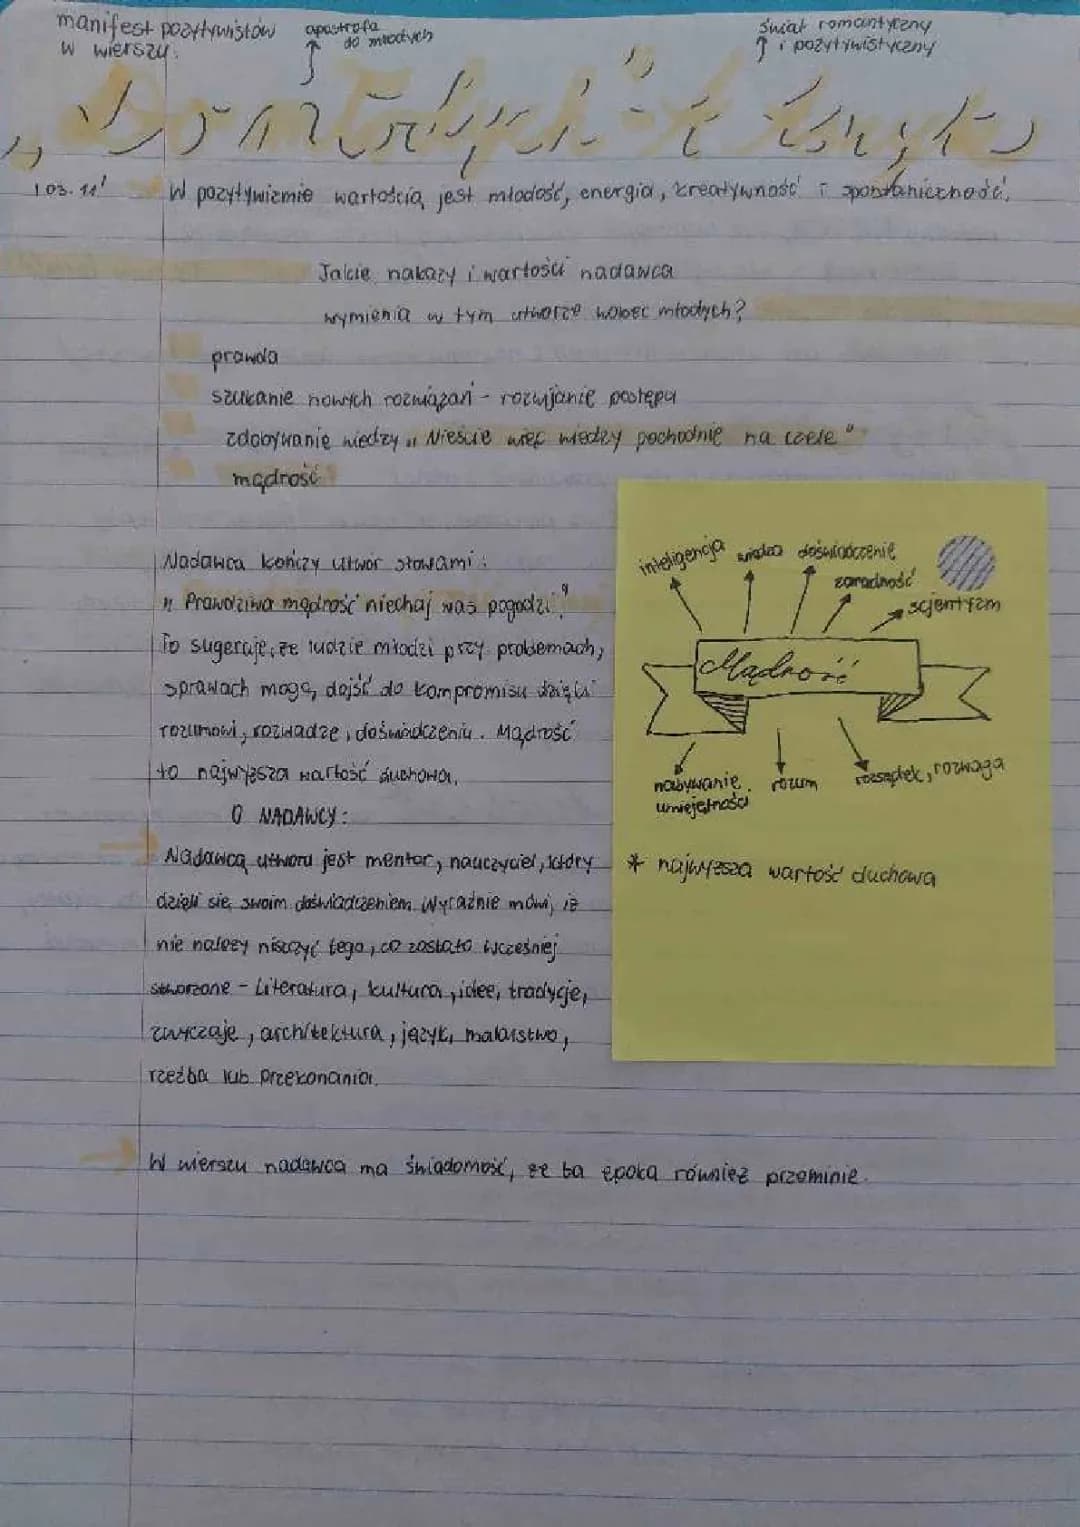 manifest pozytywistów
w wierszu.
apostrofa
do młodych
świat romantyczny
i pozytywistyczny
„Do młodych"
03.11'
W pozytywizmie wartością jest młodość, energia, kreatywność i spontaniczność.
Jakie nakazy i wartości nadawca
wymienia w tym utworze wobec młodych?
prawda
szukanie nowych rozwiązań - rozwijanie postępu
zdobywanie wiedzy „Nieście więc wiedzy pochodnię na czele"
mądrość
Nadawca kończy utwór słowami:
„Prawdziwa mądrość niechaj was pogodzi"
To sugeruje, że ludzie młodzi przy problemach,
sprawach mogą dojść do kompromisu dzięki
rozumowi, rozwadze, doświadczeniu. Mądrość
to najwyższa wartość duchowa.
O NADAWCY:
Nadawcą utworu jest mentor, nauczyciel, który
dzieli się swoim doświadczeniem. Wyraźnie mówi, iż
nie należy niszczyć tego, co zostało wcześniej
stworzone - Literatura, kultura, idee, tradycje,
zwyczaje, architektura, język, malarstwo,
rzeźba lub przekonania.
W wierszu nadawca ma świadomość, że ta epoka również przeminie.
inteligencja wiedza doświadczenie
zaradność
scjentyzm
Mądrość
nabywanie
umiejętności
rozum
rozsądek, rozwaga
* najwyższa wartość duchowa